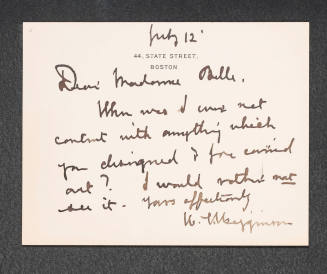 July 12
44, STATE STREET,
BOSTON.
Dear Madame Belle,
When was I ever not
content with anything which
you designed & have carried
out? I would rather not
see it. Yours affectionately
H. L. Higginson